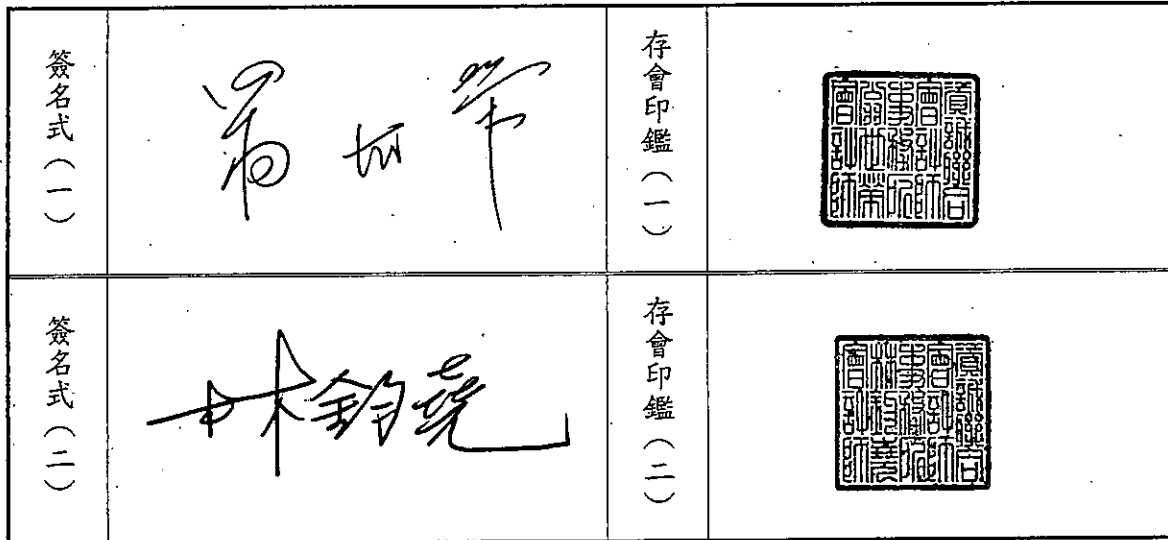 簽名式（一）
翁世榮
存會印鑑（一）
資誠聯合
會計師
事務所
翁世榮
會計師
簽名式（二）
林鈞堯
存會印鑑（二）
資誠聯合
會計師
事務所
林鈞堯
會計師